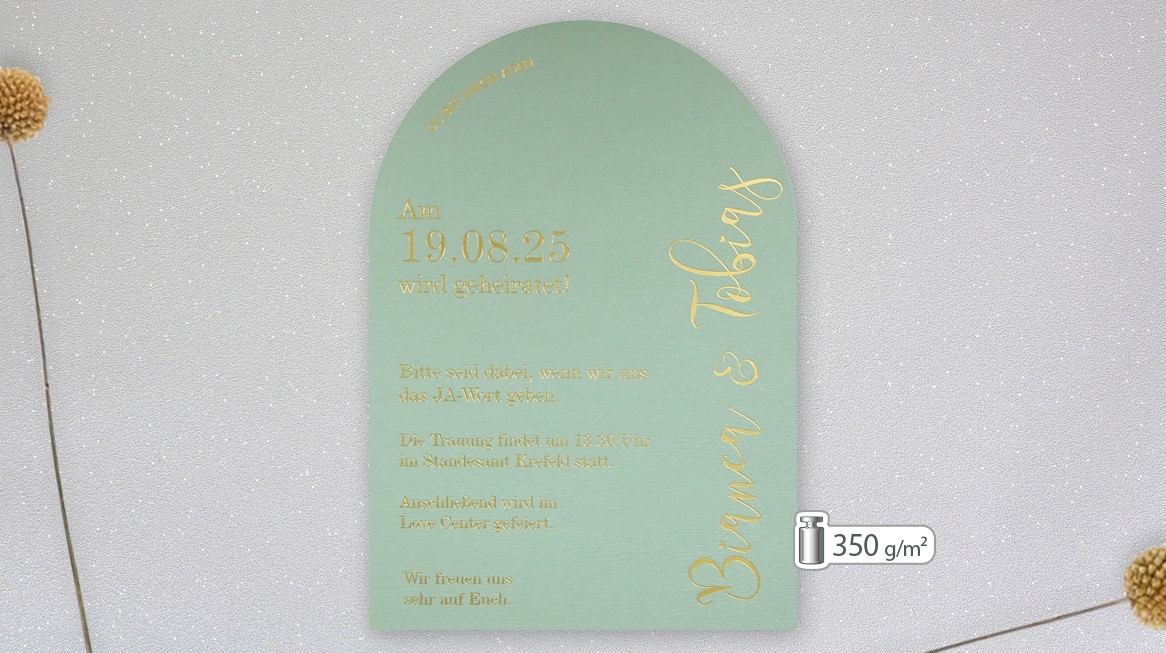 Am
19.08.25
wird geheiratet!
Bitte seid dabei, wenn wir uns
das JA-Wort geben.
Die Trauung findet um 13.30 Uhr
im Standesamt Krefeld statt.
Anschließend wird im
Love Center gefeiert.
Wir freuen uns
sehr auf Euch.
Bianca & Tobias
350 g/m²